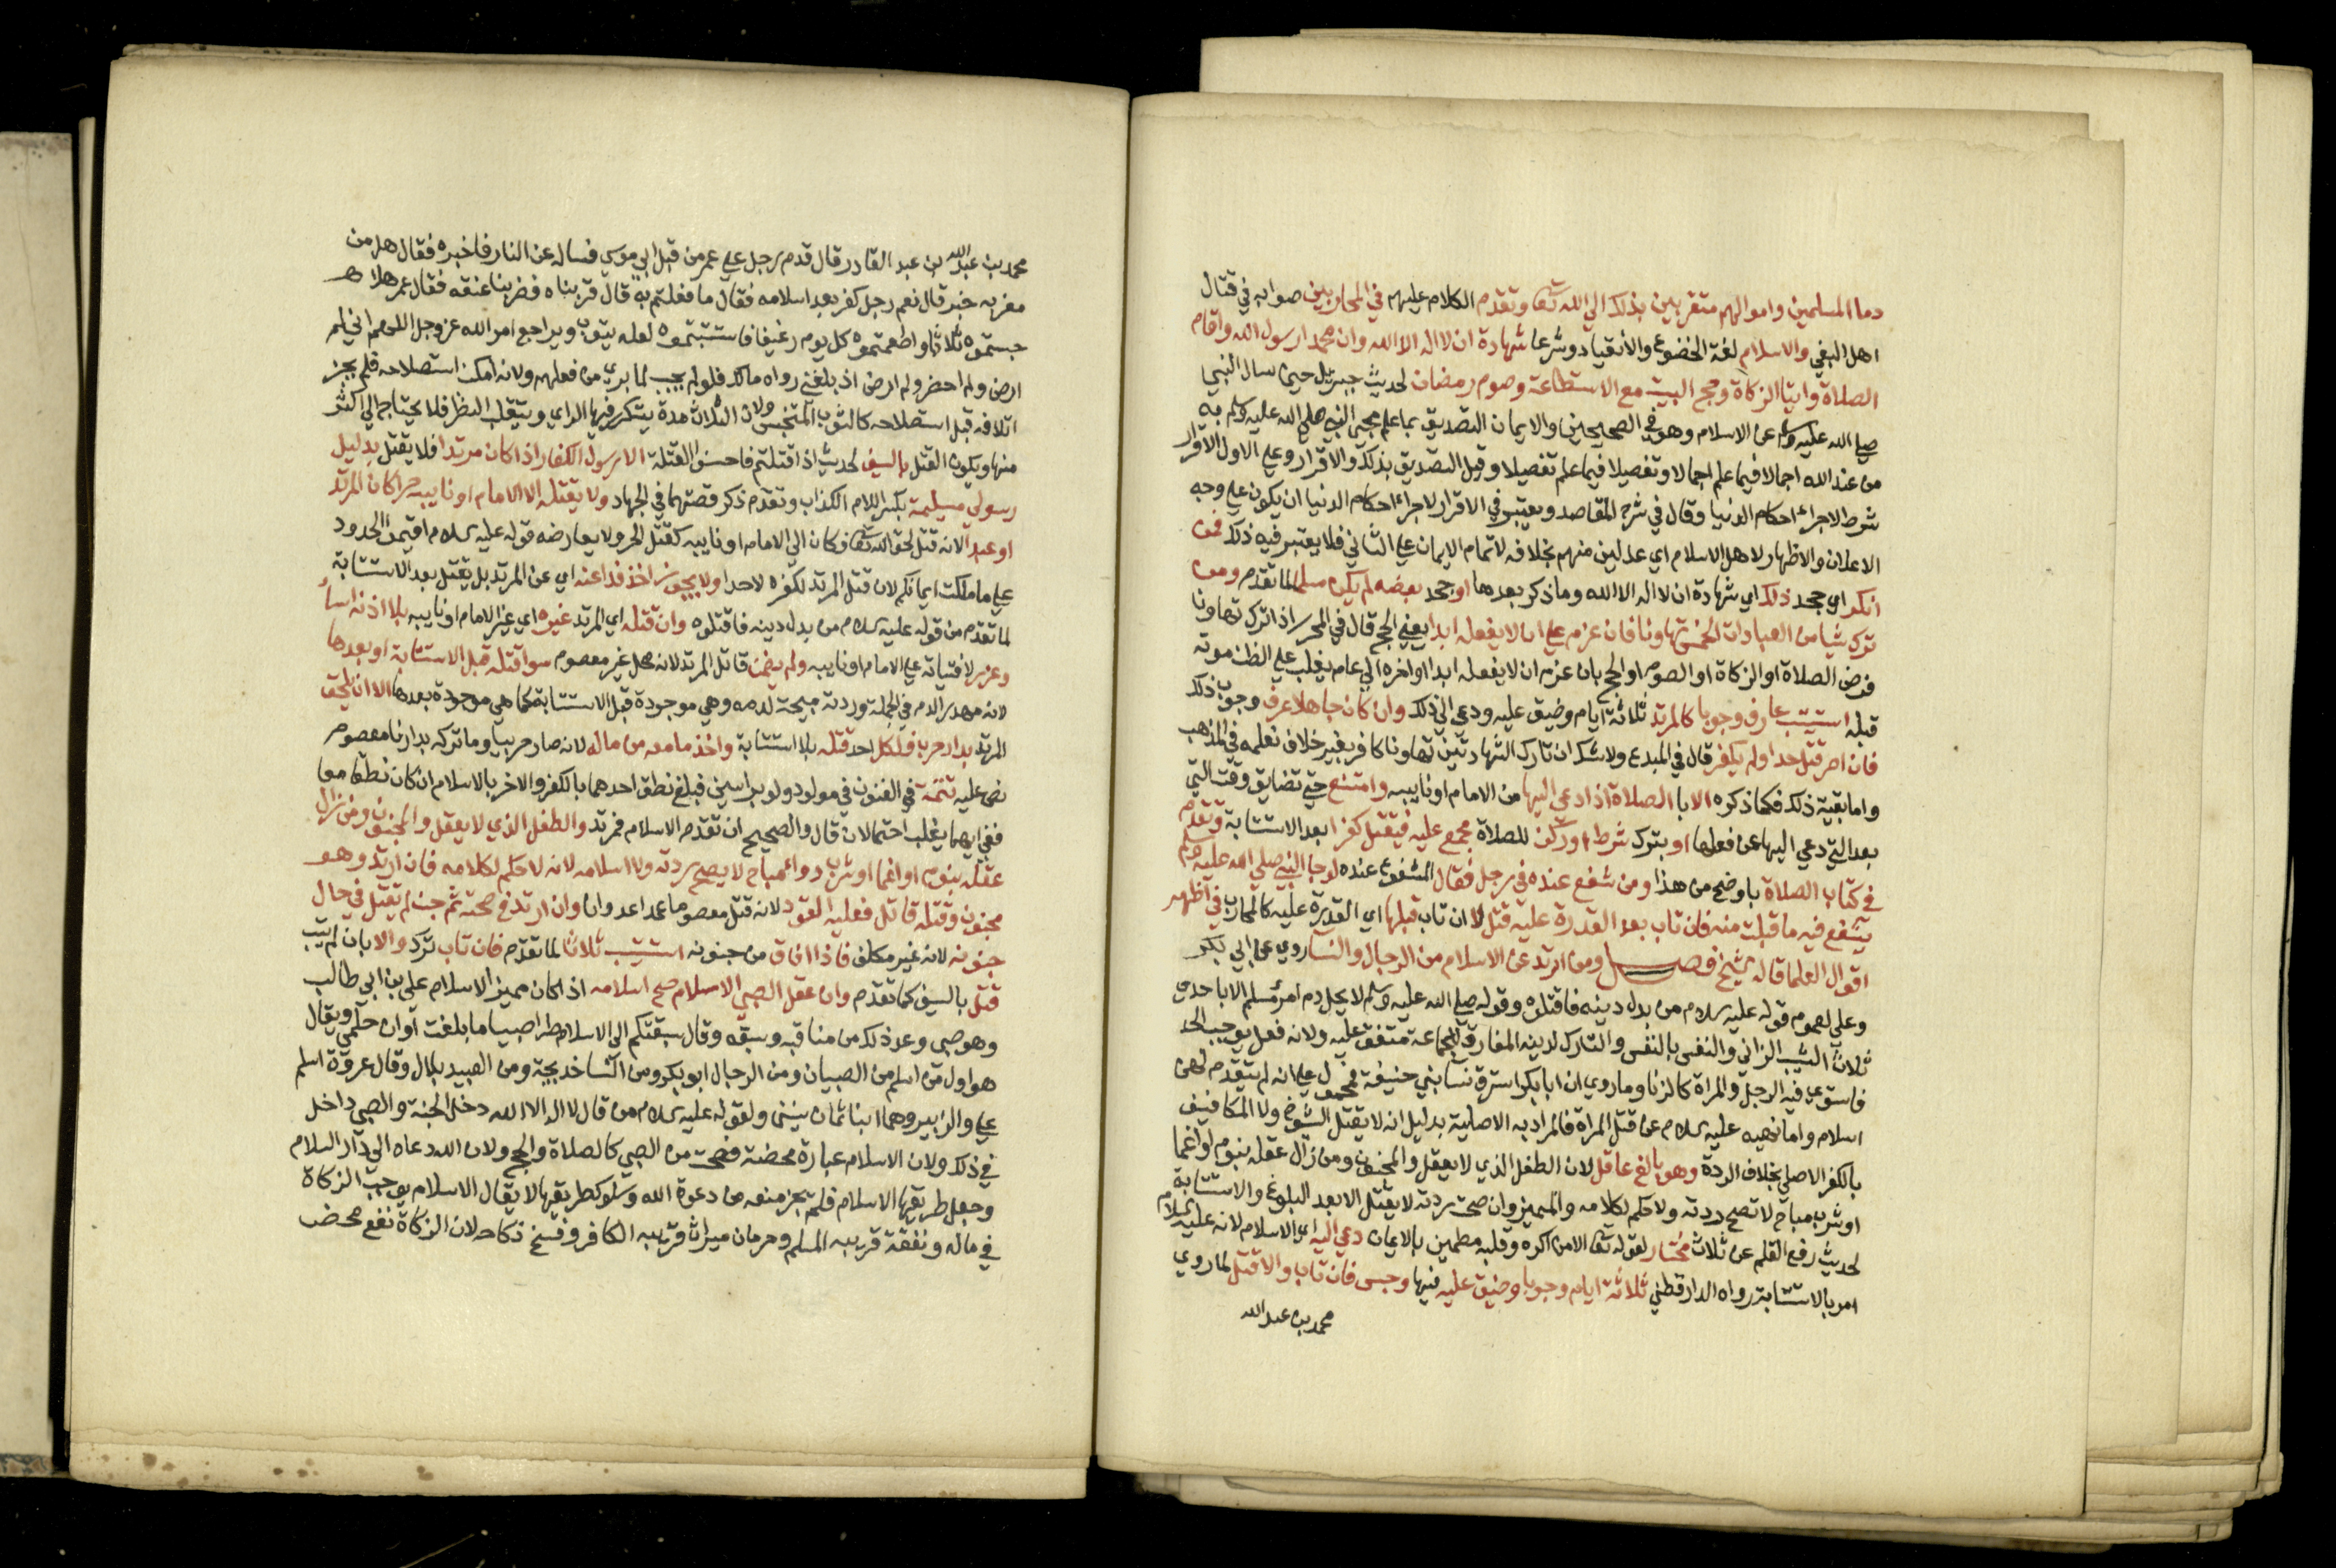 دما المسلمين واموالهم متقربين بذلك الي الله تعا وتقدم الكلام عليهم في المحاربين صوابه في قتال
اهل البغي والاسلام لغة الخضوع والانقياد وشرعا شهادة ان لا اله الا الله وان محمدا رسول الله واقام
الصلاة وايتا الزكاة وحج البيت مع الاستطاعة وصوم رمضان لحديث جبريل حين سال النبي
صلي الله عليه وسلم عن الاسلام وهو في الصحيحين والايمان التصديق بما علم مجي النبي صلي الله عليه وسلم به
من عند الله اجمالا فيما علم اجمالا وتفصيلا فيما علم تفصيلا وقيل التصديق بذلك والاقرار وعلي الاول الاقرار
شرط لاجراء احكام الدنيا وقال في شرح المقاصد ويعتبر في الاقرار لاجراء احكام الدنيا ان يكون علي وجه
الاعلان والاظهار لاهل الاسلام اي عدلين منهم بخلافه لاتمام الايمان علي الثاني فلا يعتبر فيه ذلك فمن
انكر اي جحد ذلك اي شهادة ان لا اله الا الله وما ذكر بعدها او جحد بعضه لم يكن مسلما لما تقدم ومن
ترك شيا من العبادات الخمس تهاونا فان عزم علي ان لا يفعله ابدا يعني الحج قال في المحرر اذا ترك تهاونا
فرض الصلاة او الزكاة او الصوم او الحج بان عزم ان لا يفعله ابدا او اخره الي عام يغلب علي الظن موته
قبله استتيب عارف وجوبا كالمرتد ثلاثة ايام وضيق عليه ودعي الي ذلك وان كان جاهلا عرف وجوب ذلك
فان اصر قتل حدا ولم يكفر قال في المبدع ولا شك ان تارك الشهادتين تهاونا كافر بغير خلاف نعلمه في المذهب
واما بقية ذلك فكما ذكره الا بالصلاة اذا دعي اليها من الامام او نايبه وامتنع حتي تضايق وقت التي
بعد التي دعي اليها عن فعلها او بترك شرط او ركن للصلاة مجمع عليه فيقتل كفرا بعد الاستتابة وتقدم
في كتاب الصلاة باوضح من هذا ومن شفع عنده في رجل فقال المشفوع عنده لو جا النبي صلي الله عليه وسلم
يشفع فيه ما قبلت منه فان تاب بعد القدرة عليه قتل لا ان تاب قبلها اي القدرة عليه كالمحارب في اظهر
اقوال العلما قاله الشيخ فصل ومن ارتد عن الاسلام من الرجال والنسا روي عن ابي بكر
وعلي لعموم قوله عليه السلام من بدل دينه فاقتلوه وقوله صلي الله عليه وسلم لا يحل دم امرئ مسلم الا باحدي
ثلاث الثيب الزاني والنفس بالنفس والتارك لدينه المفارق للجماعة متفق عليه ولانه فعل يوجب الحد
فاستوي فيه الرجل والمراة كالزنا وما روي ان ابا بكر استرق نسا بني حنيفة محمول علي انه لم يتقدم لهن
اسلام واما نهيه عليه السلام عن قتل المراة فالمراد به الاصلية بدليل انه لا يقتل الشيوخ ولا المكافيف
بالكفر الاصلي بخلاف الردة وهو بالغ عاقل لان الطفل الذي لا يعقل والمجنون ومن زال عقله بنوم او اغما
او شرب مباح لا تصح ردته ولا حكم لكلامه والمميز وان صحت ردته لا يقتل الا بعد البلوغ والاستتابة
لحديث رفع القلم عن ثلاث مختار لقوله تعا الا من اكره وقلبه مطمين بالايمان دعي اليه اي الاسلام لانه عليه السلام
امر بالاستتابة رواه الدارقطني ثلاثة ايام وجوبا وضيق عليه فيها وحبس فان تاب والا قتل لما روي
محمد بن عبد الله
محمد بن عبد الله بن عبد القادر قال قدم رجل علي عمر من قبل ابي موسي فساله عن النار فاخبره فقال هل من
مغربه خبر قال نعم رجل كفر بعد اسلامه فقال ما فعلتم به قال قربناه فضربنا عنقه فقال عمر هلا
حبستموه ثلاثا واطعمتموه كل يوم رغيفا فاستتبتموه لعله يتوب ويراجع امر الله عز وجل اللهم اني لم
ارض ولم احضر ولم ارض اذ بلغني رواه مالك فلو لم يجب لما بري من فعلهم ولانه امكن استصلاحه فلم يجز
اتلافه قبل استصلاحه كالثوب المتنجس ولان الثلاث مدة يتكرر فيها الراي ويتقلب النظر فلا يحتاج الي اكثر
منها ويكون القتل بالسيف لحديث اذا قتلتم فاحسنوا القتلة الا رسول الكفار اذا كان مرتدا فلا يقتل بدليل
رسولي مسيلمة بكسر اللام الكذاب وتقدم ذكر قصتهما في الجهاد ولا يقتله الا الامام او نايبه حرا كان المرتد
او عبدا لانه قتل لحق الله تعا فكان الي الامام او نايبه كقتل الحر ولا يعارضه قوله عليه السلام اقيموا الحدود
علي ما ملكت ايمانكم لان قتل المرتد لكفره لا حدا ولا يجوز اخذ فداعنه اي عن المرتد بل يقتل بعد الاستتابة
لما تقدم من قوله عليه السلام من بدل دينه فاقتلوه وان قتله اي المرتد غيره اي غير الامام او نايبه بلا اذنه اسأ
وعزر لافتياته علي الامام او نايبه ولم يضمن قاتل المرتد لانه محل غير معصوم سوا قتله قبل الاستتابة او بعدها
لانه مهدر الدم في الجملة وردته مبيحة لدمه وهي موجودة قبل الاستتابة كما هي موجودة بعدها الا ان يلحق
المرتد بدار حرب فلكل احد قتله بلا استتابة واخذ ما معه من ماله لانه صار حربيا وما تركه بدارنا معصوم
نص عليه تتمة في الفنون في مولود ولو براسين فبلغ نطق احدهما بالكفر والاخر بالاسلام ان كان نطقا معا
ففي ايهما يغلب احتمالان قال والصحيح ان تقدم الاسلام فمرتد والطفل الذي لا يعقل والمجنون ومن زال
عقله بنوم او اغما او شرب دوا مباح لا يصح ردته ولا اسلامه لانه لا حكم لكلامه فان ارتد وهو
مجنون وقتله قاتل فعليه القود لانه قتل معصوما عمدا عدوانا وان ارتد في صحته ثم جن لم يقتل في حال
جنونه لانه غير مكلف فاذا افاق من جنونه استتيب ثلاثا لما تقدم فان تاب ترك والا بان لم يتب
قتل بالسيف كما تقدم وان عقل الصبي الاسلام صح اسلامه اذا كان مميزا لاسلام علي بن ابي طالب
وهو صبي وعد ذلك من مناقبه وسبقه وقال سبقتكم الي الاسلام طرا صبيا ما بلغت اوان حلمي ويقال
هو اول من اسلم من الصبيان ومن الرجال ابو بكر ومن النسا خديجة ومن العبيد بلال وقال عروة اسلم
علي والزبير وهما ابنا ثمان سنين ولقوله عليه السلام من قال لا اله الا الله دخل الجنة والصبي داخل
في ذلك ولان الاسلام عبادة محضة فصحت من الصبي كالصلاة والحج ولان الله دعاه الي دار السلام
وجعل طريقها الاسلام فلم يجز منعه من دعوة الله وسلوك طريقها لا يقال الاسلام يوجب الزكاة
في ماله ونفقة قريبه المسلم وحرمان ميراث قريبه الكافر وفسخ نكاحه لان الزكاة نفع محض